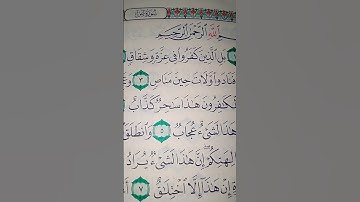 ـمِ ٱللَّهِ ٱلرَّحْمَٰنِ ٱلرَّحِيمِ
بَلِ ٱلَّذِينَ كَفَرُوا۟ فِى عِزَّةٍ وَشِقَاقٍ
فَنَادَوا۟ وَّلَاتَ حِينَ مَنَاصٍ ٣
ٱلْكَٰفِرُونَ هَٰذَا سَٰحِرٌ كَذَّابٌ
هَٰذَا لَشَىْءٌ عُجَابٌ ٥ وَٱنطَلَقَ
ءَالِهَتِكُمْ إِنَّ هَٰذَا لَشَىْءٌ يُرَادُ
إِنْ هَٰذَآ إِلَّا ٱخْتِلَٰقٌ ٧